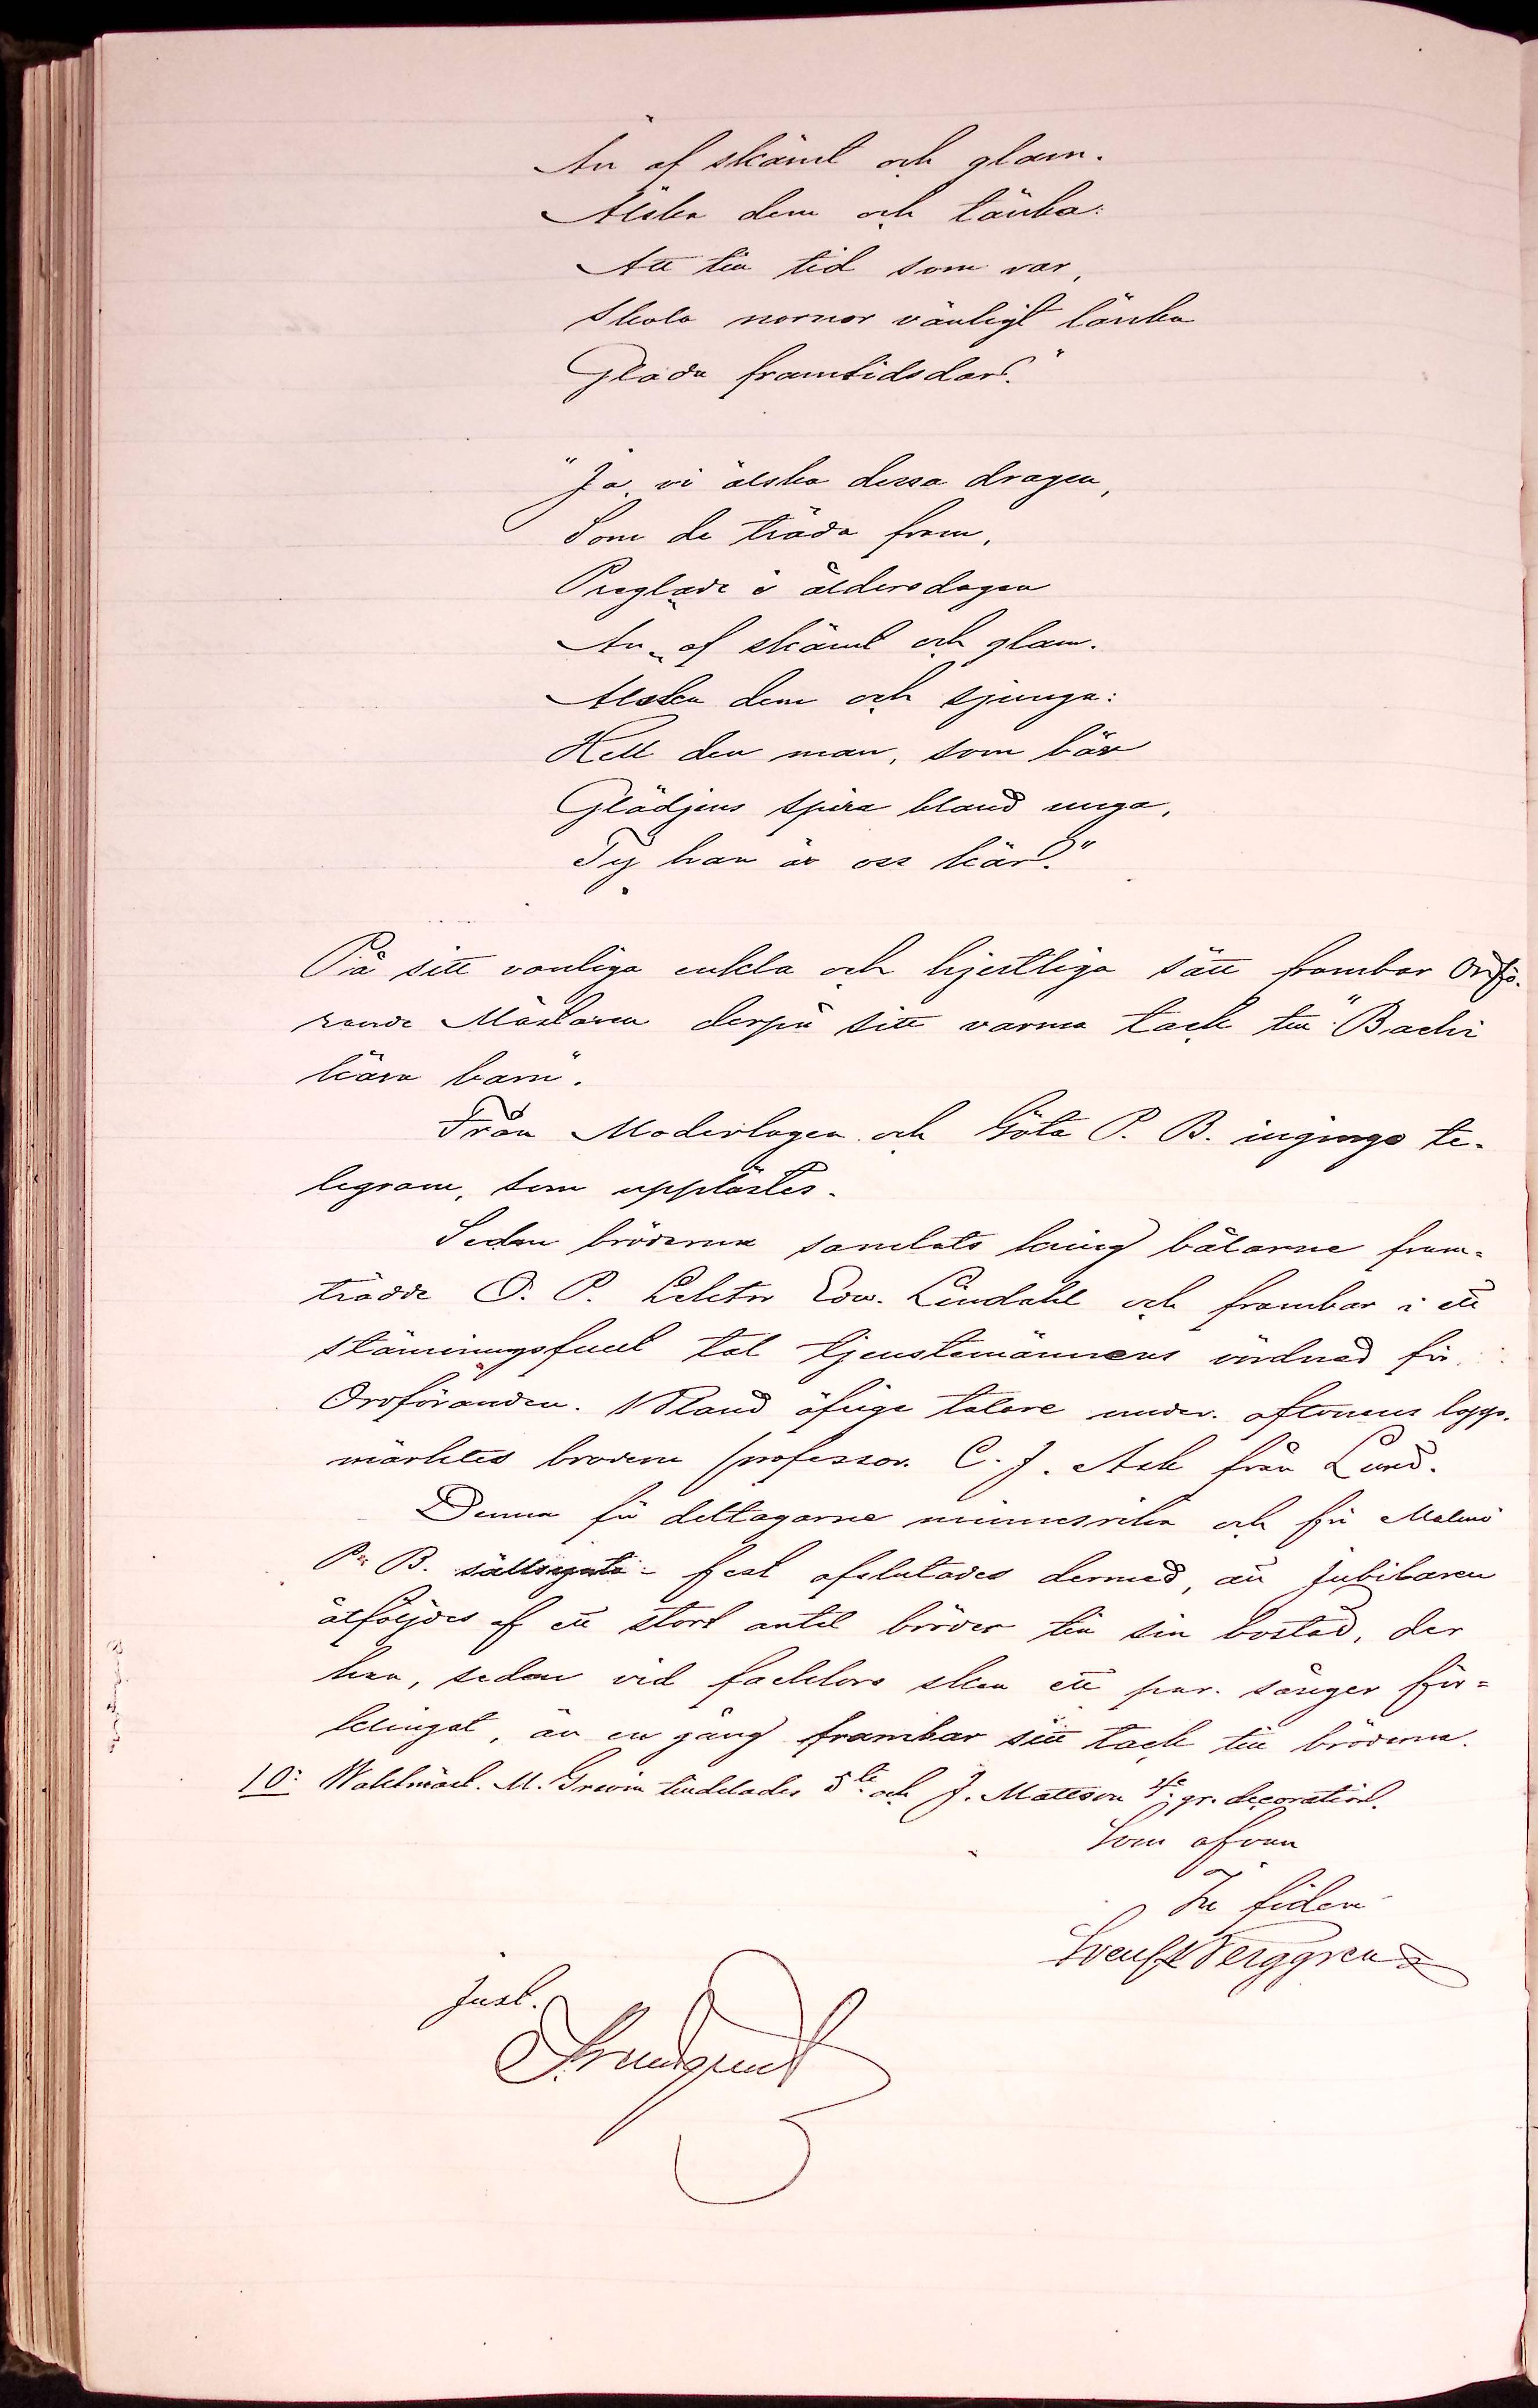 Än af skämt och glam.
Älska dem och tänka:
Att till tid som var,
Skola nornor vänligt länka
Glada framtidsdar."
"Ja, vi älska dessa dragen,
Som de träda fram,
Preglade i åldersdagen
Än af skämt och glam.
Älska dem och sjunga:
Hell den man, som bär
Glädjens spira bland unga,
Ty han är oss kär."
På sitt vanliga enkla och hjertliga sätt frambar Ordfö-
rande Mästaren derpå sitt varma tack till "Bachi
kära barn".
Från Moderlogen och Göta P. B. ingingo te-
legram, som upplästes.
Sedan bröderna samlats kring bålarne fram-
trädde O. P. Lektor Edw. Lindahl och frambar i ett
stämningsfullt tal tjenstemännens vördnad för
Ordföranden. Bland öfrige talare under aftonens lopp
märktes brodern professor C. J. Ask från Lund.
Denna för deltagarne minnesrika och för Malmö
P. B. sällsynta fest afslutades dermed, att jubilaren
åtföljdes af ett stort antal bröder till sin bostad, der
han, sedan vid facklors sken ett par sånger för-
klingat, än en gång frambar sitt tack till bröderna.
10: Waktmäst. M. Grevin tilldelades 5te och J. Mattson gr. decoration.
Som ofvan
In fidem
Sven Berggren
Just.